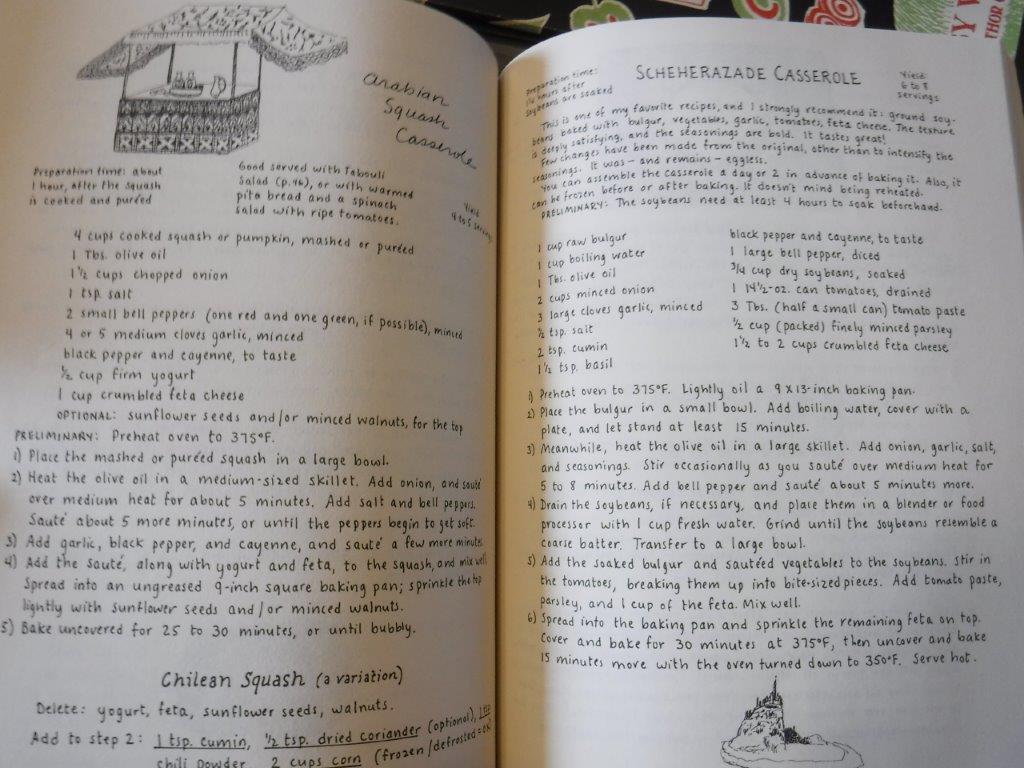 arabian
Squash
Casserole
Preparation time: about
1 hour, after the squash
is cooked and puréed
Good served with Tabouli
Salad (p.46), or with warmed
pita bread and a spinach
salad with ripe tomatoes.
Yield:
4 to 5 servings
4 cups cooked squash or pumpkin, mashed or puréed
1 Tbs. olive oil
1 1/2 cups chopped onion
1 tsp. salt
2 small bell peppers (one red and one green, if possible), minced
4 or 5 medium cloves garlic, minced
black pepper and cayenne, to taste
1/2 cup firm yogurt
1 cup crumbled feta cheese
OPTIONAL: sunflower seeds and/or minced walnuts, for the top
PRELIMINARY: Preheat oven to 375°F.
1) Place the mashed or puréed squash in a large bowl.
2) Heat the olive oil in a medium-sized skillet. Add onion, and sauté
over medium heat for about 5 minutes. Add salt and bell peppers.
Sauté about 5 more minutes, or until the peppers begin to get soft.
3) Add garlic, black pepper, and cayenne, and sauté a few more minutes.
4) Add the sauté, along with yogurt and feta, to the squash, and mix well.
Spread into an ungreased 9-inch square baking pan; sprinkle the top
lightly with sunflower seeds and/or minced walnuts.
5) Bake uncovered for 25 to 30 minutes, or until bubbly.
Chilean Squash (a variation)
Delete: yogurt, feta, sunflower seeds, walnuts.
Add to step 2: 1 tsp. cumin, 1/2 tsp. dried coriander (optional), 1 tsp
chili powder, 2 cups corn (frozen/defrosted=ok)
Preparation time:
1 1/4 hours after
soybeans are soaked
SCHEHERAZADE CASSEROLE
Yield:
6 to 8
servings
This is one of my favorite recipes, and I strongly recommend it: ground soy-
beans baked with bulgur, vegetables, garlic, tomatoes, feta cheese. The texture
is deeply satisfying, and the seasonings are bold. It tastes great!
Few changes have been made from the original, other than to intensify the
seasonings. It was - and remains - eggless.
You can assemble the casserole a day or 2 in advance of baking it. Also, it
can be frozen before or after baking. It doesn't mind being reheated.
PRELIMINARY: The soybeans need at least 4 hours to soak beforehand.
1 cup raw bulgur
1 cup boiling water
1 Tbs. olive oil
2 cups minced onion
3 large cloves garlic, minced
1/2 tsp. salt
2 tsp. cumin
1 1/2 tsp. basil
black pepper and cayenne, to taste
1 large bell pepper, diced
3/4 cup dry soybeans, soaked
1 14 1/2-oz. can tomatoes, drained
3 Tbs. (half a small can) tomato paste
1/2 cup (packed) finely minced parsley
1 1/2 to 2 cups crumbled feta cheese
1) Preheat oven to 375°F. Lightly oil a 9 x 13-inch baking pan.
2) Place the bulgur in a small bowl. Add boiling water, cover with a
plate, and let stand at least 15 minutes.
3) Meanwhile, heat the olive oil in a large skillet. Add onion, garlic, salt,
and seasonings. Stir occasionally as you sauté over medium heat for
5 to 8 minutes. Add bell pepper and sauté about 5 minutes more.
4) Drain the soybeans, if necessary, and place them in a blender or food
processor with 1 cup fresh water. Grind until the soybeans resemble a
coarse batter. Transfer to a large bowl.
5) Add the soaked bulgur and sautéed vegetables to the soybeans. Stir in
the tomatoes, breaking them up into bite-sized pieces. Add tomato paste,
parsley, and 1 cup of the feta. Mix well.
6) Spread into the baking pan and sprinkle the remaining feta on top.
Cover and bake for 30 minutes at 375°F, then uncover and bake
15 minutes move with the oven turned down to 350°F. Serve hot.